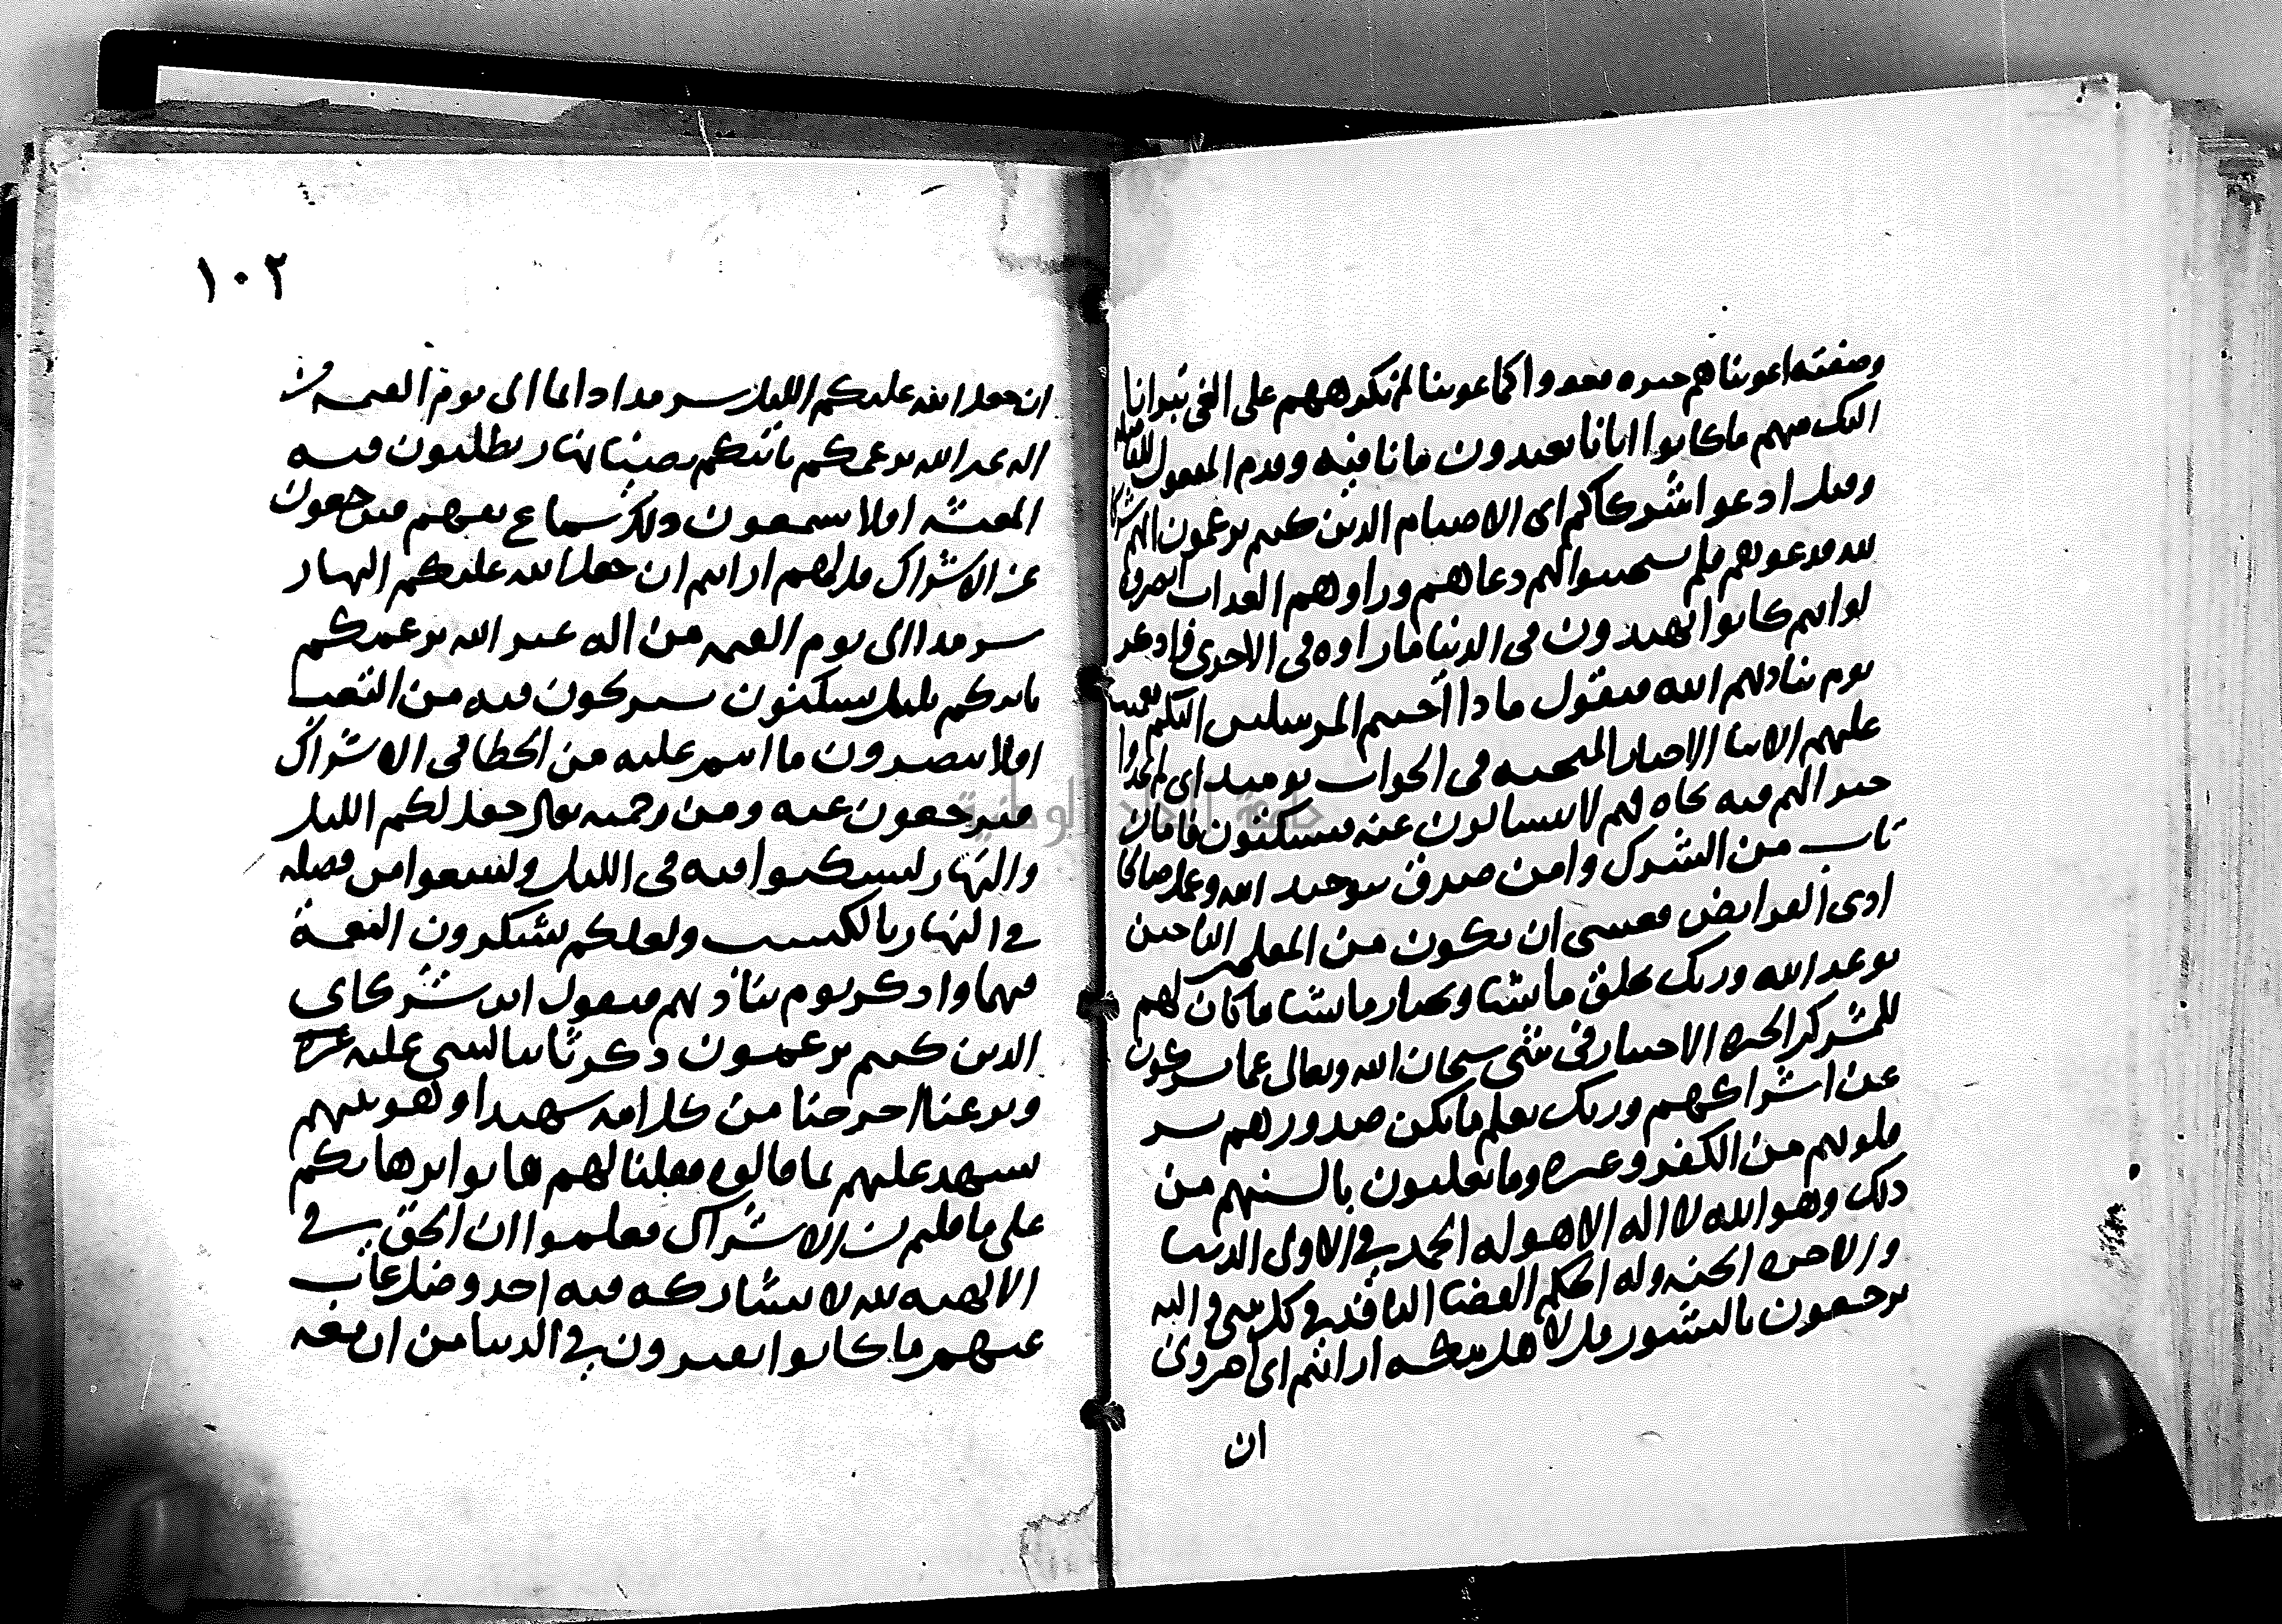 وصفته اغويناهم خبره فغووا كما غوينا لم نكرههم على الغي تبرانا
اليك منهم ما كانوا ايانا يعبدون ما نافيه وقدم المفعول للفاصله
وقيل ادعوا شركاكم اي الاصنام الذين كنتم تزعمون انهم شركا
لله فدعوهم فلم يستجيبوا لهم دعاهم وراوهم العذاب ابصروه
لو انهم كانوا يهتدون في الدنيا ما راوه في الاخرى واذكر
يوم يناديهم الله فيقول ماذا اجبتم المرسلين اليكم فعميت
عليهم الانبا الاخبار المنجيه في الجواب يوميذ اي لم يجدوا
خبرا لهم فيه نجاه فهم لا يتسالون عنه فيسكتون فاما من
تاب من الشرك وامن صدق بتوحيد الله وعمل صالحا
ادى الفرايض فعسى ان يكون من المفلحين الناجين
بوعد الله وربك يخلق ما يشا ويختار ما يشا ما كان لهم
للمشركين الخيره الاختيار في شي سبحان الله وتعالى عما يشركون
عن اشراكهم وربك يعلم ما تكن صدورهم تسر
قلوبهم من الكفر وغيره وما يعلنون بالسنتهم من
ذلك وهو الله لا اله الا هو له الحمد في الاولى الدنيا
والاخره الجنه وله الحكم القضا النافذ في كل شي واليه
ترجعون بالنشور قل لاهل مكه ارايتم اي اخبروني
ان
١٠٢
ان جعل الله عليكم الليل سرمدا دايما الى يوم القيمه من
اله غير الله بزعمكم ياتيكم بضيا نهار تطلبون فيه
المعيشه افلا تسمعون ذلك سماع تفهم فترجعون
عن الاشراك قل لهم ارايتم ان جعل الله عليكم النهار
سرمدا الى يوم القيمه من اله غير الله بزعمكم
ياتيكم بليل تسكنون تستريحون فيه من التعب
افلا تبصرون ما انتم عليه من الخطا في الاشراك
فترجعون عنه ومن رحمته تعالى جعل لكم الليل
والنهار لتسكنوا فيه في الليل ولتبتغوا من فضله
في النهار بالكسب ولعلكم تشكرون النعمة
فيهما واذكر يوم يناديهم فيقول اين شركاي
الذين كنتم تزعمون ذكر ثانيا ليبنى عليه غيره
ونزعنا اخرجنا من كل امه شهيدا وهو نبيهم
يشهد عليهم بما قالوه فقلنا لهم هاتوا برهانكم
على ما قلتم من الاشراك فعلموا ان الحق في
الالهيه لله لا يشاركه فيه احد وضل غاب
عنهم ما كانوا يفترون في الدنيا من ان معه